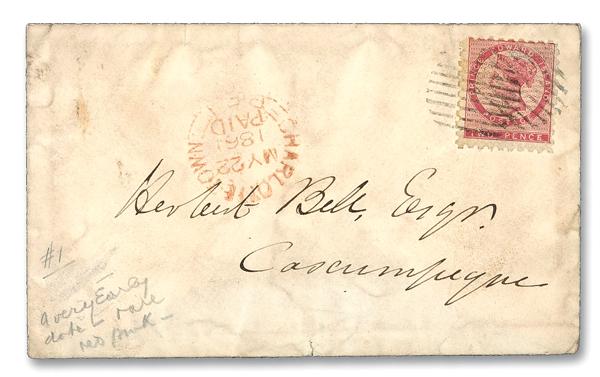 PRINCE EDWARD ISLAND
POSTAGE
TWO PENCE
CHARLOTTETOWN
MY 22
1861
PAID
Herbert Bell, Esqr.
Cascumpeque
#1
a very Early
date – rare
red pmk –